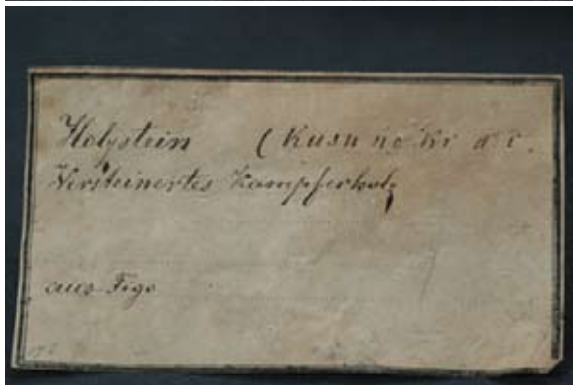 Holzstein (Kusu no Ki
Versteinertes Kampferholz
aus Figo